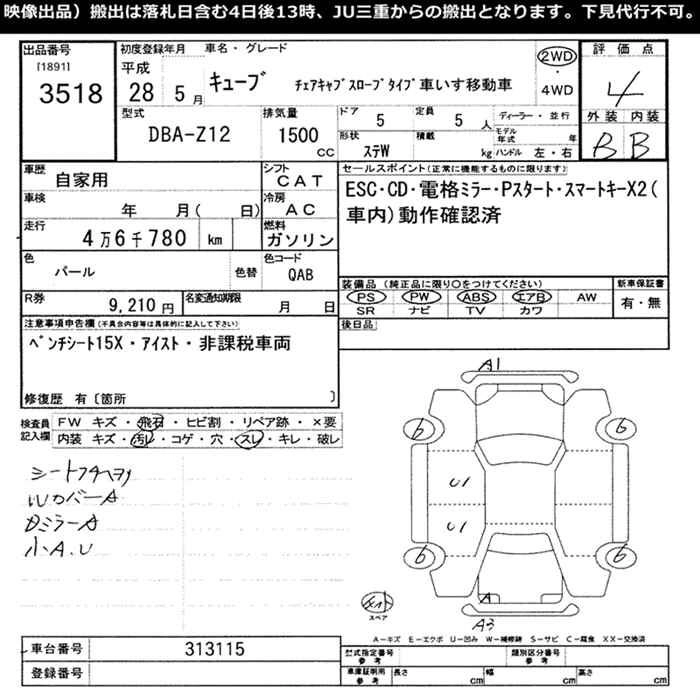 映像出品）搬出は落札日含む4日後13時、JU三重からの搬出となります。下見代行不可。
出品番号 初度登録年月 車名・グレード 評価点
[1891] 平成 キューブ チェアキャブスロープタイプ車いす移動車 2WD 4
3518 28 5月 4WD
型式 排気量 ドア 5 定員 5人 ディーラー・並行 外装 内装
DBA-Z12 1500cc 形状 ステW 積載 kg モデル年式 年 ハンドル 左・右 B B
車歴 自家用 シフト CAT セールスポイント(正常に機能するものに限ります)
車検 年 月( 日) 冷房 AC ESC・CD・電格ミラー・Pスタート・スマートキーX2(
走行 4万6千780 km 燃料 ガソリン 車内)動作確認済
色 パール 色替 色コード QAB
装備品（純正品に限り○をつけてください） 新車保証書
R券 9,210円 名変通知期限 月 日 PS PW ABS エアB AW 有・無
SR ナビ TV カワ
注意事項申告欄(不具合内容等は具体的に記入して下さい) 後日品
ベンチシート15X・アイスト・非課税車両
修復歴 有〔箇所 〕
検査員記入欄 FW キズ・飛石・ヒビ割・リペア跡・×要
内装 キズ・汚レ・コゲ・穴・スレ・キレ・破レ
A1
6 6
U1
U1
ミラーA
小A.U
6 6
A
スペア
A3
A－キズ E－エクボ U－凹み W－補修跡 S－サビ C－腐食 XX－交換済
車台番号 313115 型式指定番号 参考 類別区分番号 参考
登録番号 車庫証明用 参考 長さ cm 幅 cm 高さ cm